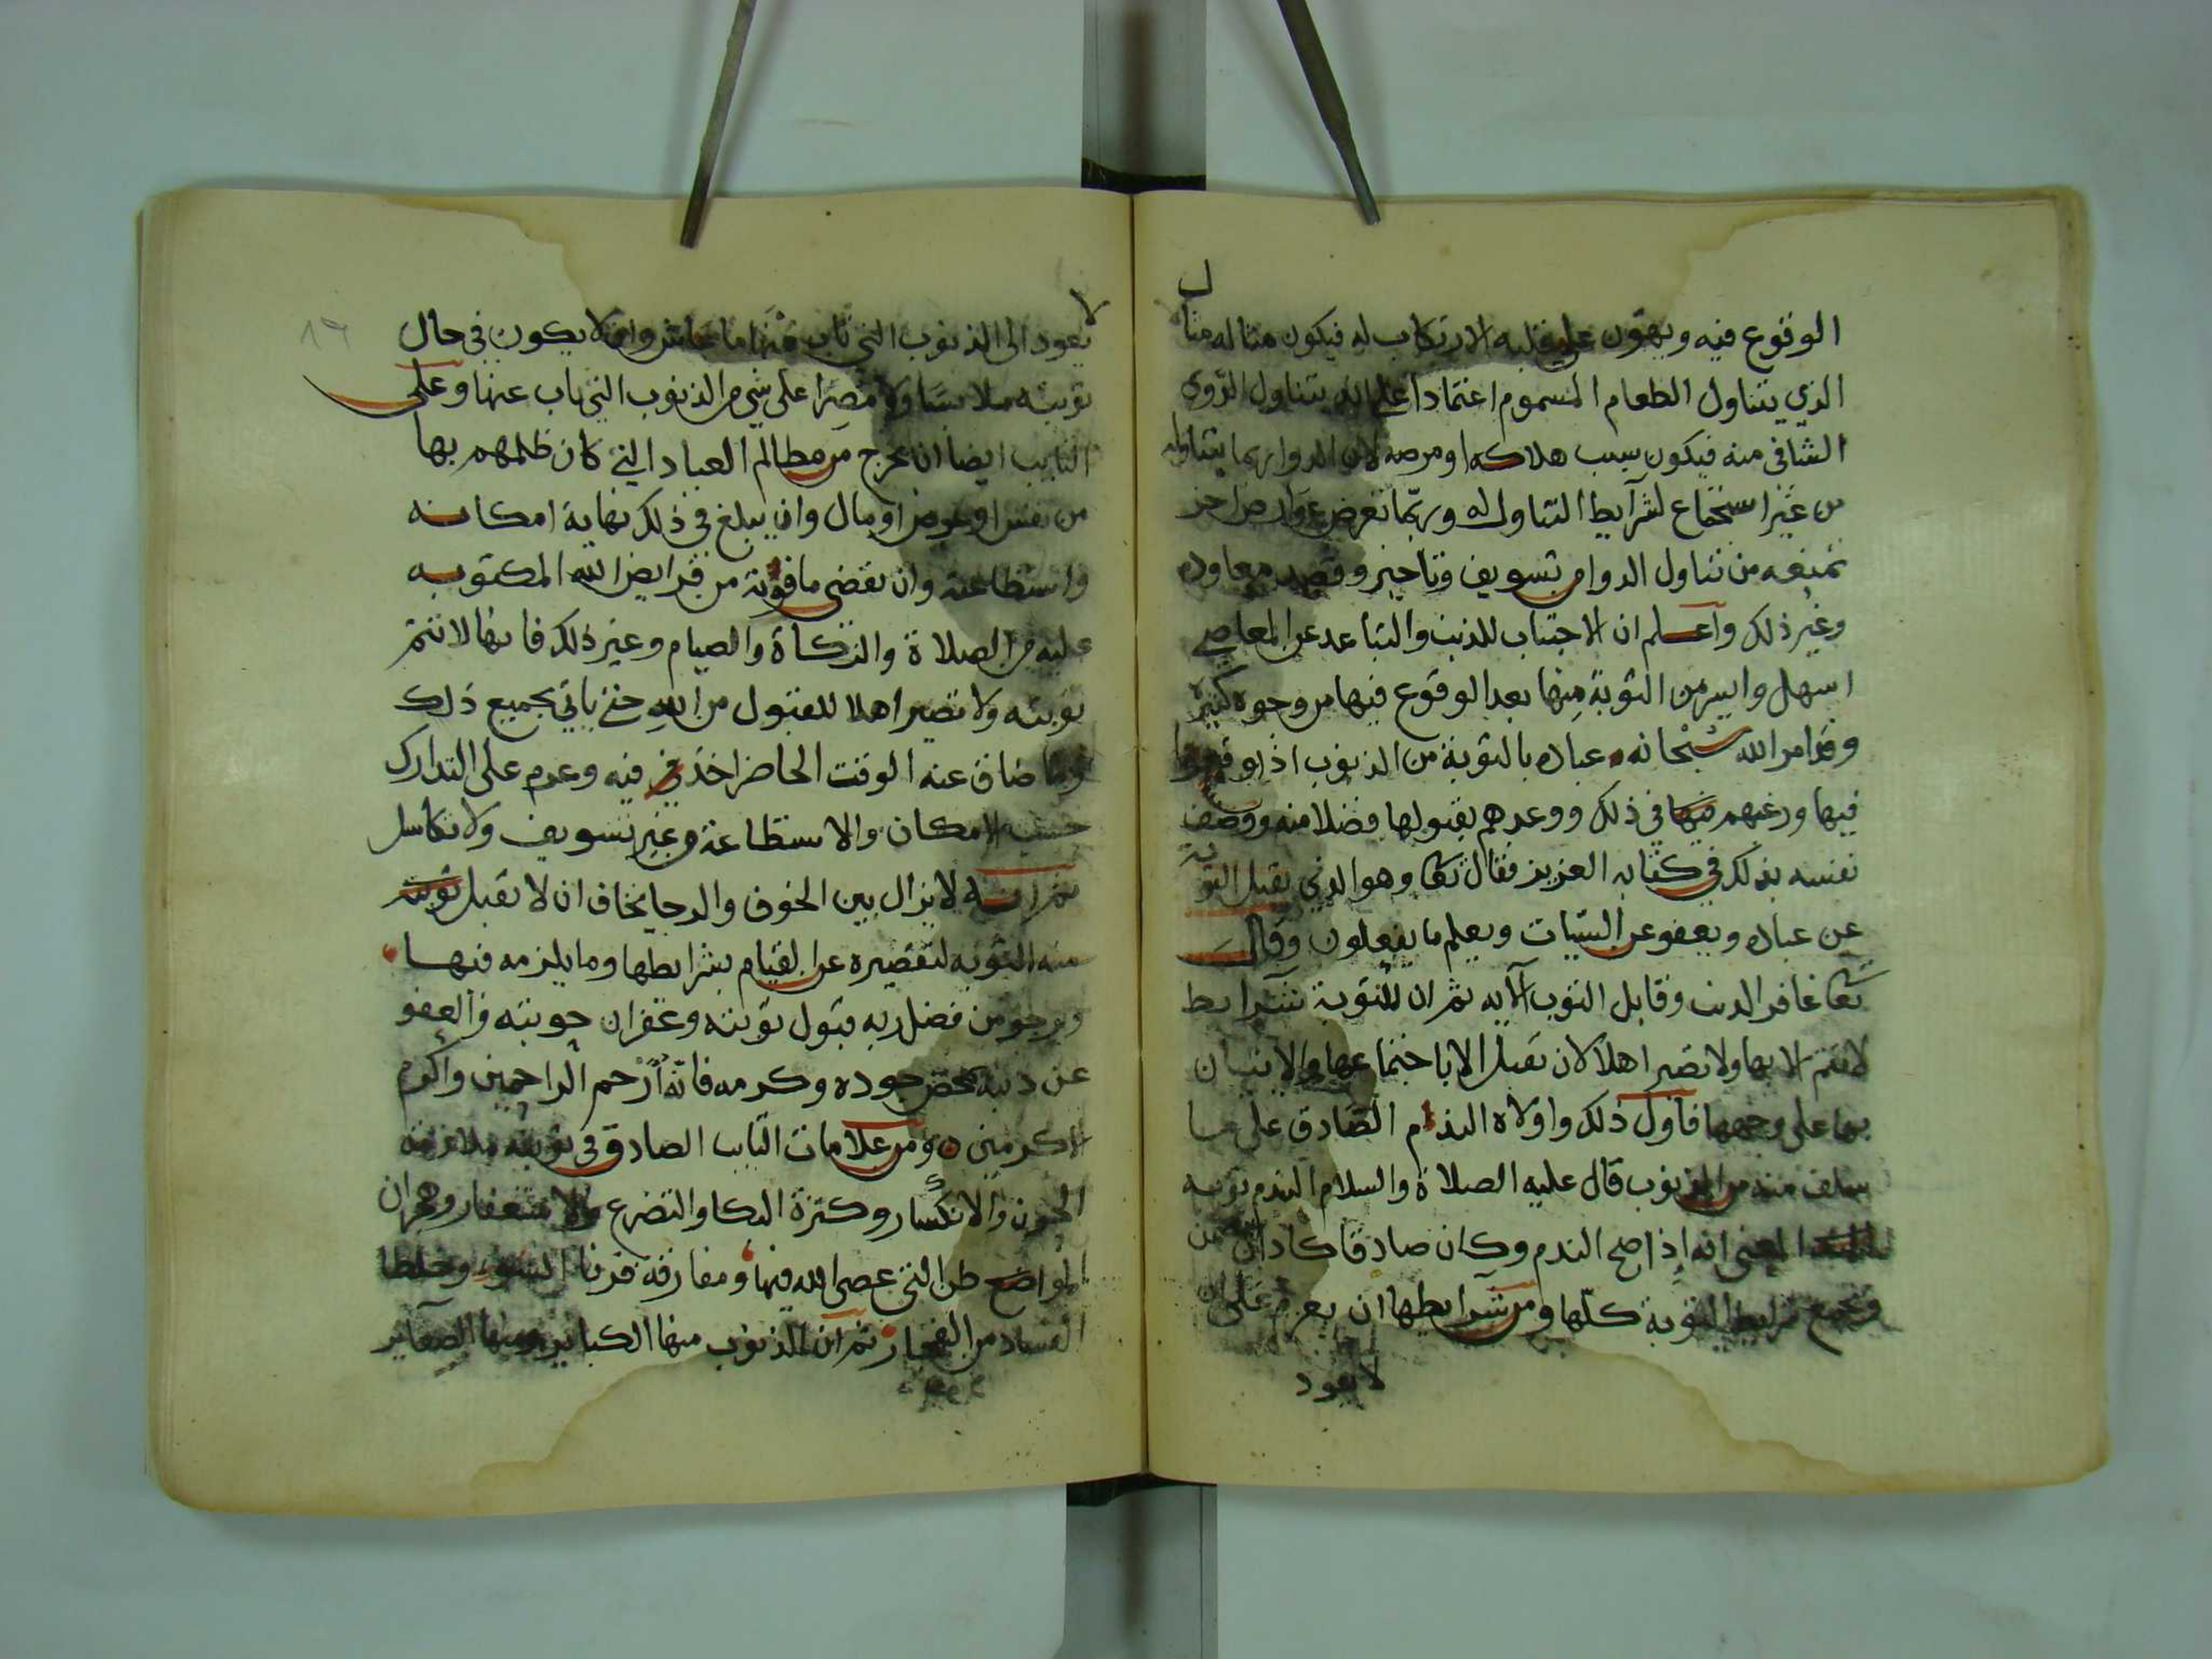 الوقوع فيه ويهون على قلبه الارتكاب له فيكون مثاله مثال
الذي يتناول الطعام المسموم اعتمادا على انه يتناول الدوى
الشافي منه فيكون سبب هلاكه او مرضه لان الدوا ربما يتناوله
من غير استجماع لشرآيط التناول له وربّما تعرض عوارض اخر
تمنعه من تناول الدوا من تسويف وتاخير وقصد معاوده
وغير ذلك وآعلم ان الاجتناب للذنب والتباعد عن المعاصي
اسهل وايسر من التوبة مِنها بعد الوقوع فيها من وجوه كثيرة
وقد امر الله سُبْحانه عباده بالتوبة من الذنوب اذا وقعوا
فيها ورغبهم في ذلك ووعدهم بقبولها فضلا منه ووصف
نفسه بذلك في كتابه العزيز فقال تعا وهو الذي يقبل التوبة
عن عباده ويعفو عن السّيات ويعلم ما يفعلون وقال
تعا غافر الذنب وقابل التوب الآيه ثم ان للتوبة شرايط
لا تتم الا بها ولا تصير اهلا لان تقبل الا باجتماعها والاتيان
بها على وجهها فآول ذلك واولاه الندم الصّادق على ما
سلف منه من الذنوب قال عليه الصلاة والسلام الندم توبه
المعنى انه إذا صح الندم وكان صادقا كاد ان
وتجمع شرايط التوبة كلّها ومن شرآيطها ان يعزم على ان
لا يعود
لا يعود الى الذنوب التي تاب مِنْهَا ما عاش وان لا يكون في حال
توبته ملابسًا ولا مُصِرًا على شي من الذنوب التي تاب عنها وعلى
التايب ايضا ان يخرج من مظالم العباد التي كان ظلمهم بها
من نفس او عرض او مال وان يبلغ في ذلك نهاية امكانه
واستطاعته وان يقضي ما فوّته من فرايض الله المكتوبه
عليه من الصلاة والزكاة والصيام وغير ذلك فانها لا تتم
توبته ولا تصير اهلا للقبول من الله حتى ياتي بجميع ذلك
وما ضاق عنه الوقت الحاضر اخذ فيه وعزم على التدارك
حسب الامكان والاستطاعة من غير تسويف ولا تكاسل
ثم انه لا يزال بين الخوف والرجا يخاف ان لا تقبل توبته
منه التوبه لتقصيره عن القيام بشرايطها وما يلزمه فيها
ويرجو من فضل ربه قبول توبته وغفران حوبته والعفو
عن ذنبه بمحض جوده وكرمه فانّه أرْحم الراحمين وأكرم
الاكرمين ومن علامات التايب الصادق في توبته ملازمته
الحزن والانكسار وكثرة البكا والتضرع والاستغفار وهجران
المواضع التي عصى الله فيها ومفارقه قرنا السّوء وخلطا
الفساد من الفجار ثم ان الذنوب منها الكباير ومنها الصغآير